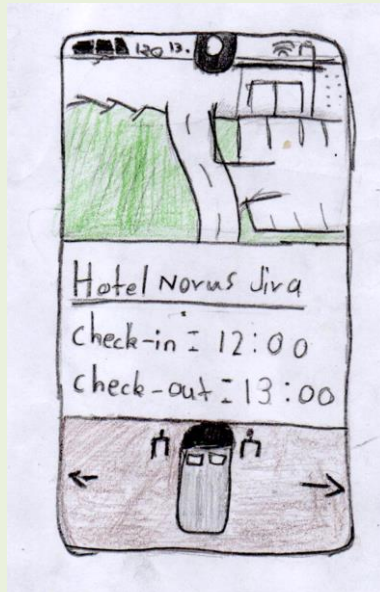 120 13.
Hotel Novus Jira
check-in : 12:00
check-out : 13:00